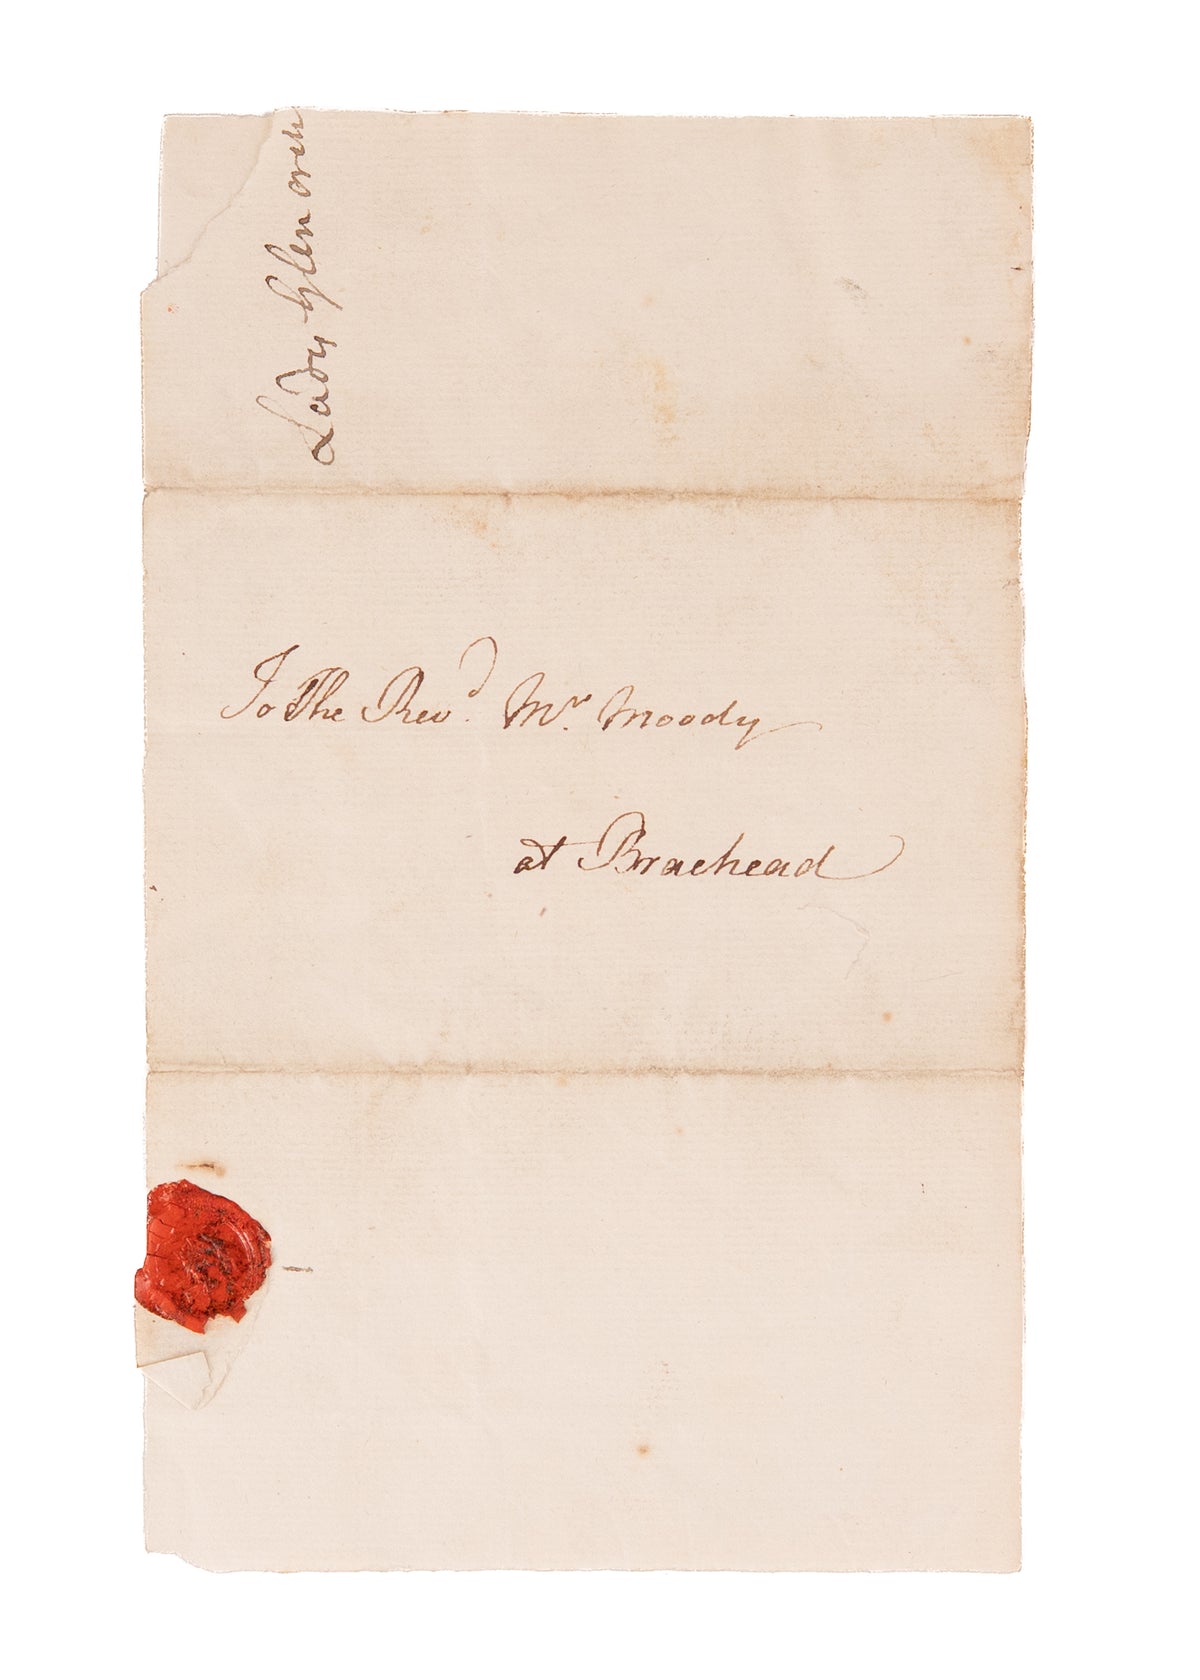 Lady Glenorch
To The Revd. Mr. Moody
at Braehead